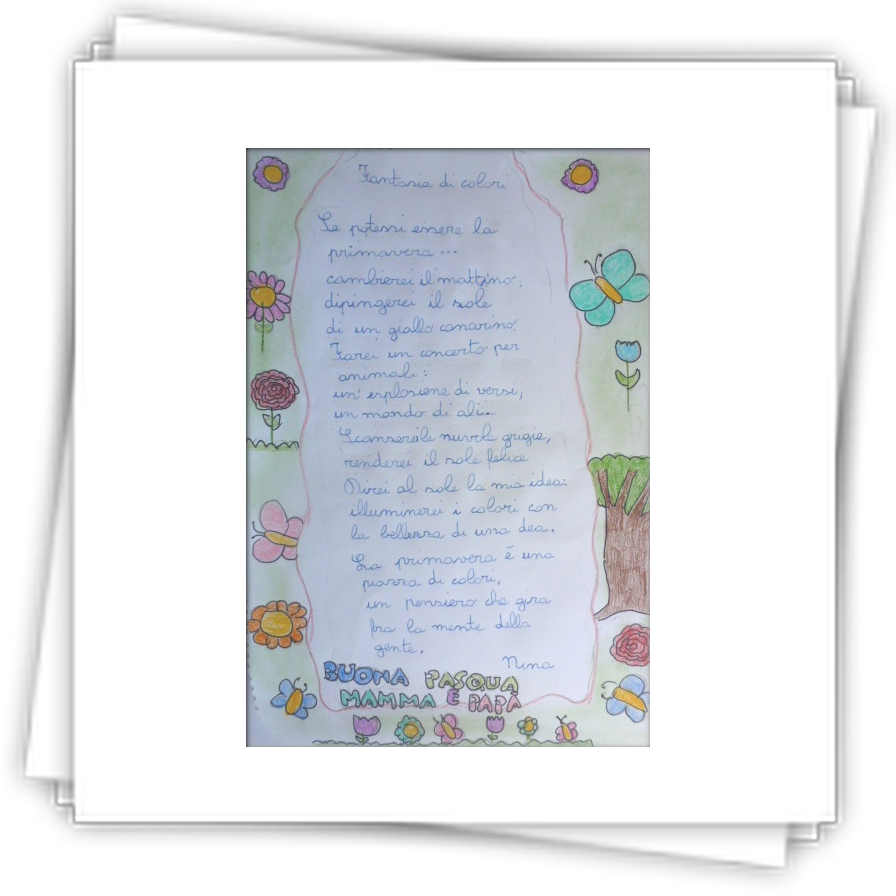 Fantasia di colori
Se potessi essere la
primavera...
cambierei il mattino:
dipingerei il sole
di un giallo canarino.
Farei un concerto per
animali:
un' esplosione di versi,
un mondo di ali...
Scanserei le nuvole grigie,
renderei il sole felice
Direi al sole la mia idea:
illuminerei i colori con
la bellezza di una dea.
La primavera é una
piazza di colori,
un pensiero che gira
fra la mente della
gente.
Nina
BUONA PASQUA
MAMMA E PAPÀ